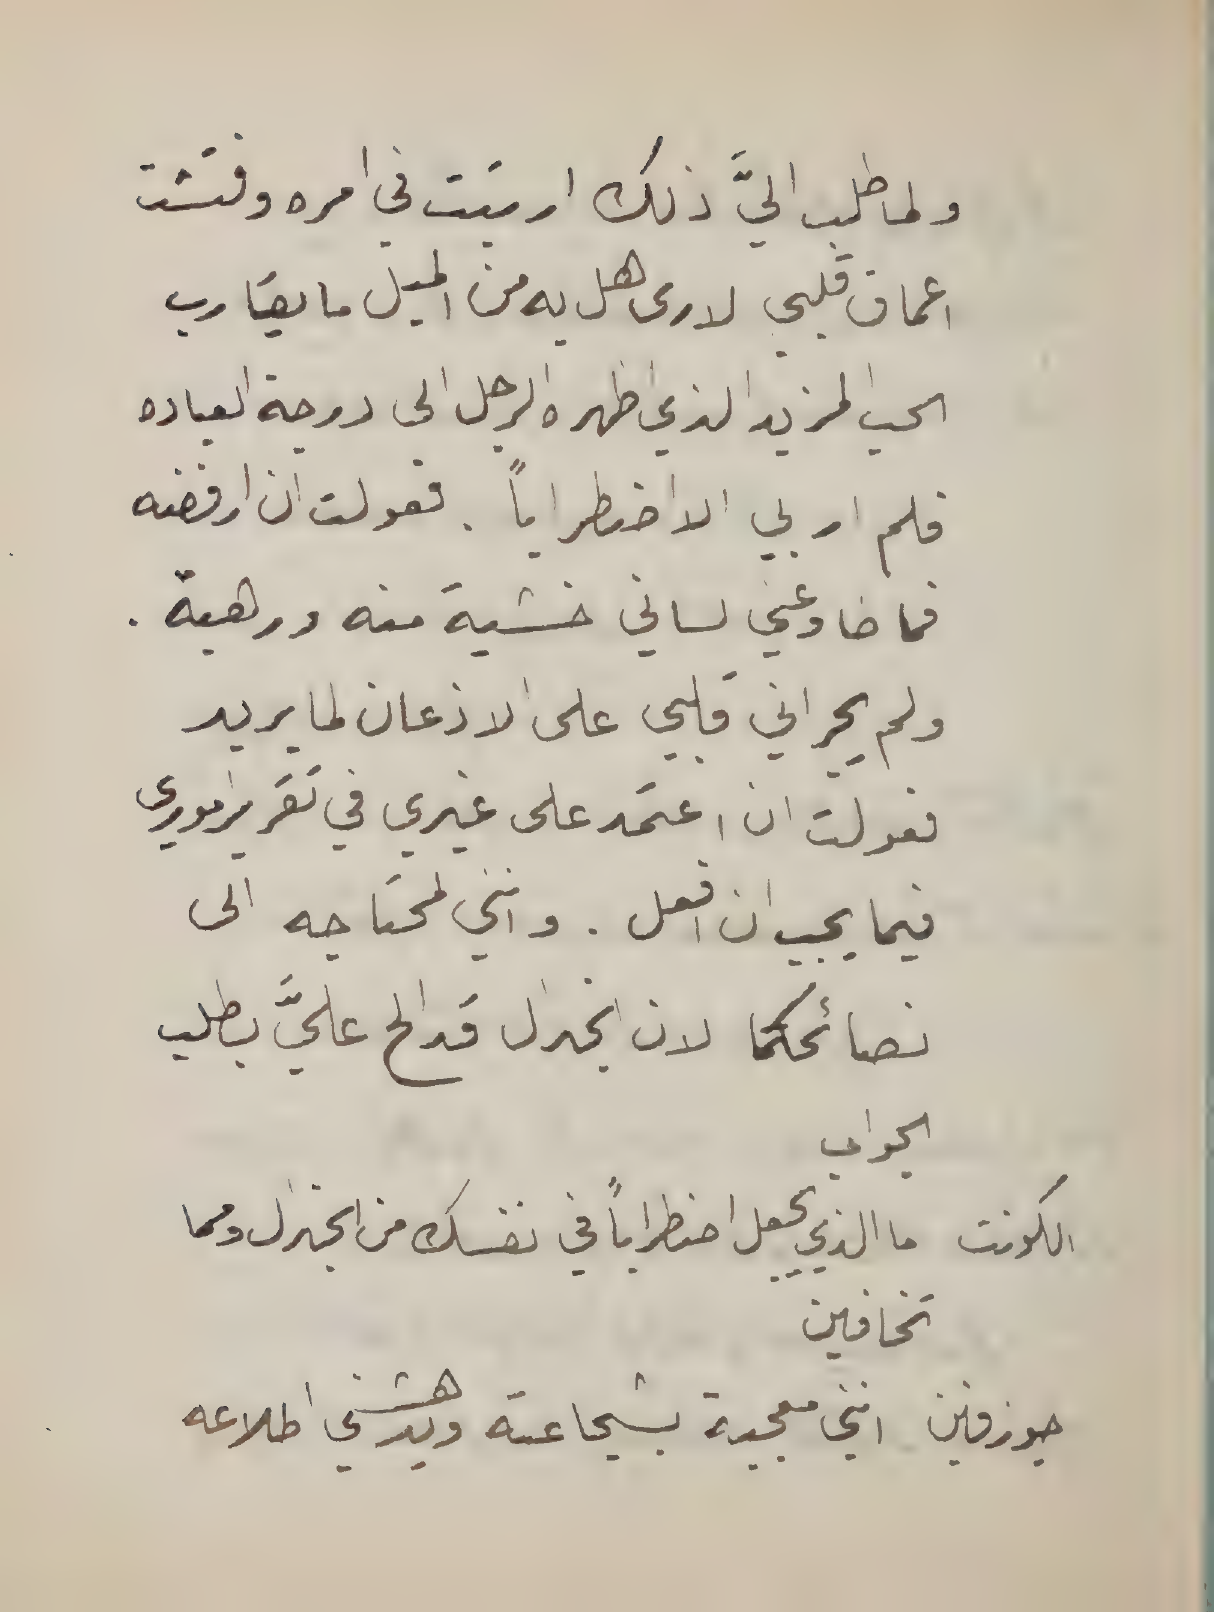 ولما طلب اليَّ ذلك ارتبت في امره وفتشت
اعماق قلبي لارى هل به من الميل ما يقارب
الحب المزيد الذي اظهره الرجل الى درجة العباده
فلم ار بي الا اضطراباً . فحولت ان ارفضه
فما ضاوعني لساني خشية منه ورهبة .
ولم يجراني قلبي على الاذعان لما يريد
فحولت ان اعتمد على غيري في تقرير اموري
فيما يجب ان افعل . وانني لمحتاجه الى
نصائحكما لان الجنرال قد الح عليَّ بطلب
الجواب
الكونت ما الذي يجعل اضطراباً في نفسك من الجنرال ومما
تخافين
جوزفين انني معجبة بشجاعته ويدهشني اطلاعه